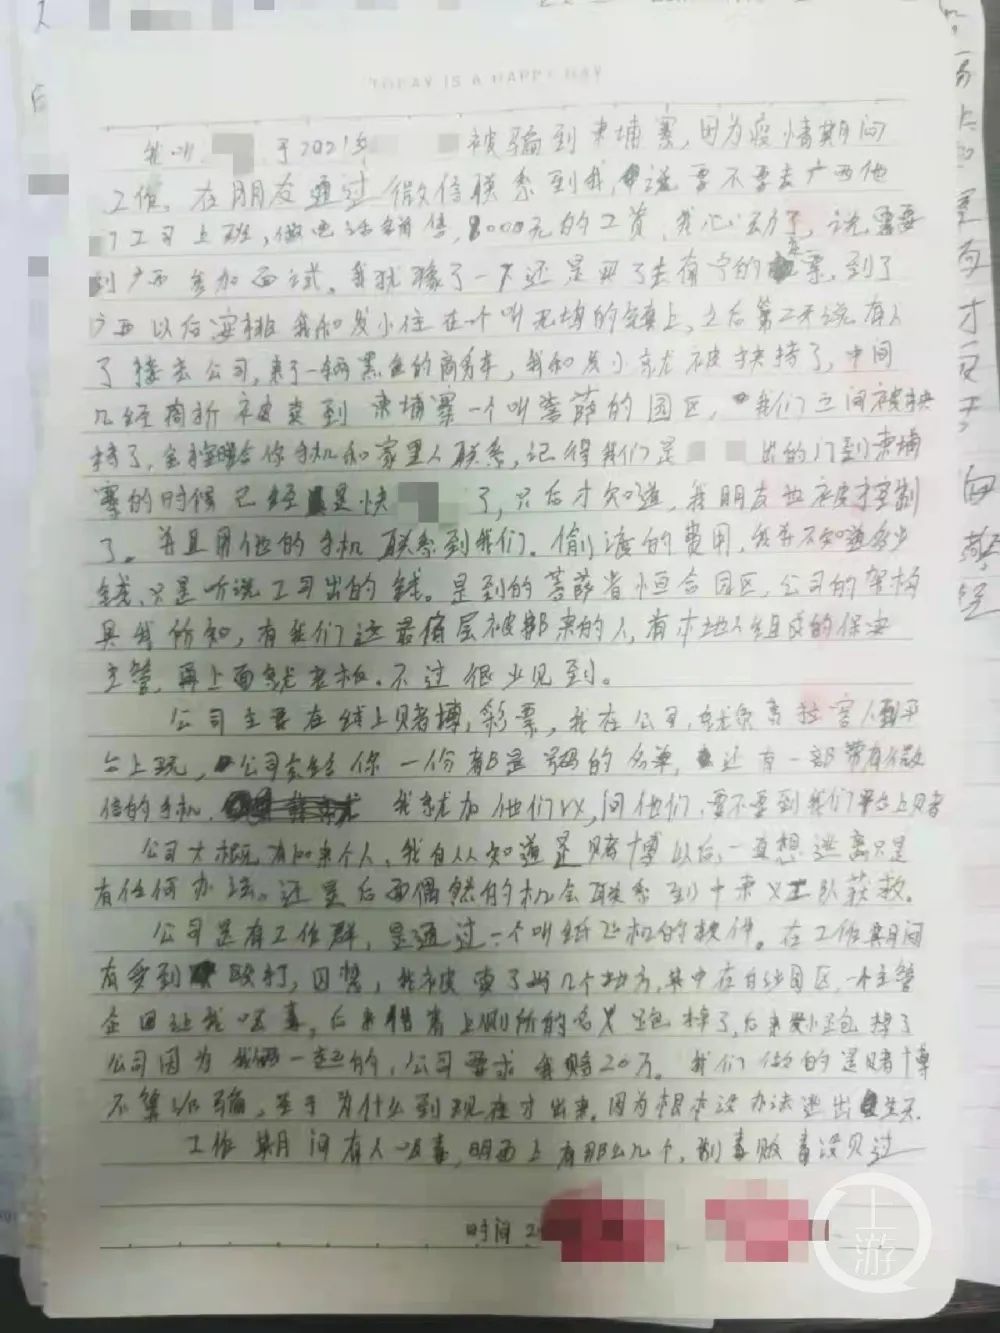 TODAY IS A HAPPY DAY
我叫 于2021年 被骗到柬埔寨,因为疫情期间
工作。在朋友通过微信联系到我,说要不要去广西他
工司上班,做电话销售,8000元的工资,我心动了,说需要
到广西参加面试。我犹豫了一下还是买了去南宁的票,到了
广西以后安排我和发小住在一个叫 的镇上,之后第二天说有人
了接去公司,来了一辆黑色的商务车,我和发小就被挟持了,中间
几经周折被卖到柬埔寨一个叫菩萨的园区,我们之间被挟
持了,会 给你手机和家里人联系,记得我们是 出的门到柬埔
寨的时候已经是快 了,只后才知道,我朋友也被控制
了。并且用他的手机联系到我们。偷渡的费用,我并不知道多少
钱,只是听说工司出的钱。是到的菩萨省恒合园区,公司的架构
具我所知,有我们这最底层被骗来的人,有本地人组成的保安
主管,再上面就老板。不过很少见到。
公司主要在线上赌博,彩票,我在公司,就负责拉客人到平
台上玩,公司会给你一份都是号码的名单,还有一部带有微
信的手机, 我就加他们以,问他们,要不要到我们平台上赌
公司大概有 来个人,我自从知道是赌博以后,一直想逃离只是
有任何办法。还是后面偶然的机会联系到 义工队获救。
公司是有工作群,是通过一个叫纸飞机的软件。在工作期间
有受到 殴打,囚禁,我被卖了好几个地方,其中在白沙园区,一个主管
企图让我吸毒,后来借着上厕所的名义跑掉了,后来发小跑掉了
公司因为我俩一起的,公司要求我赔20万。我们做的是赌博
不算诈骗,至于为什么到现在才出来,因为根本没办法逃出
工作期间有人吸毒,明面上有那么几个,制毒贩毒没见过
时间 20
上游